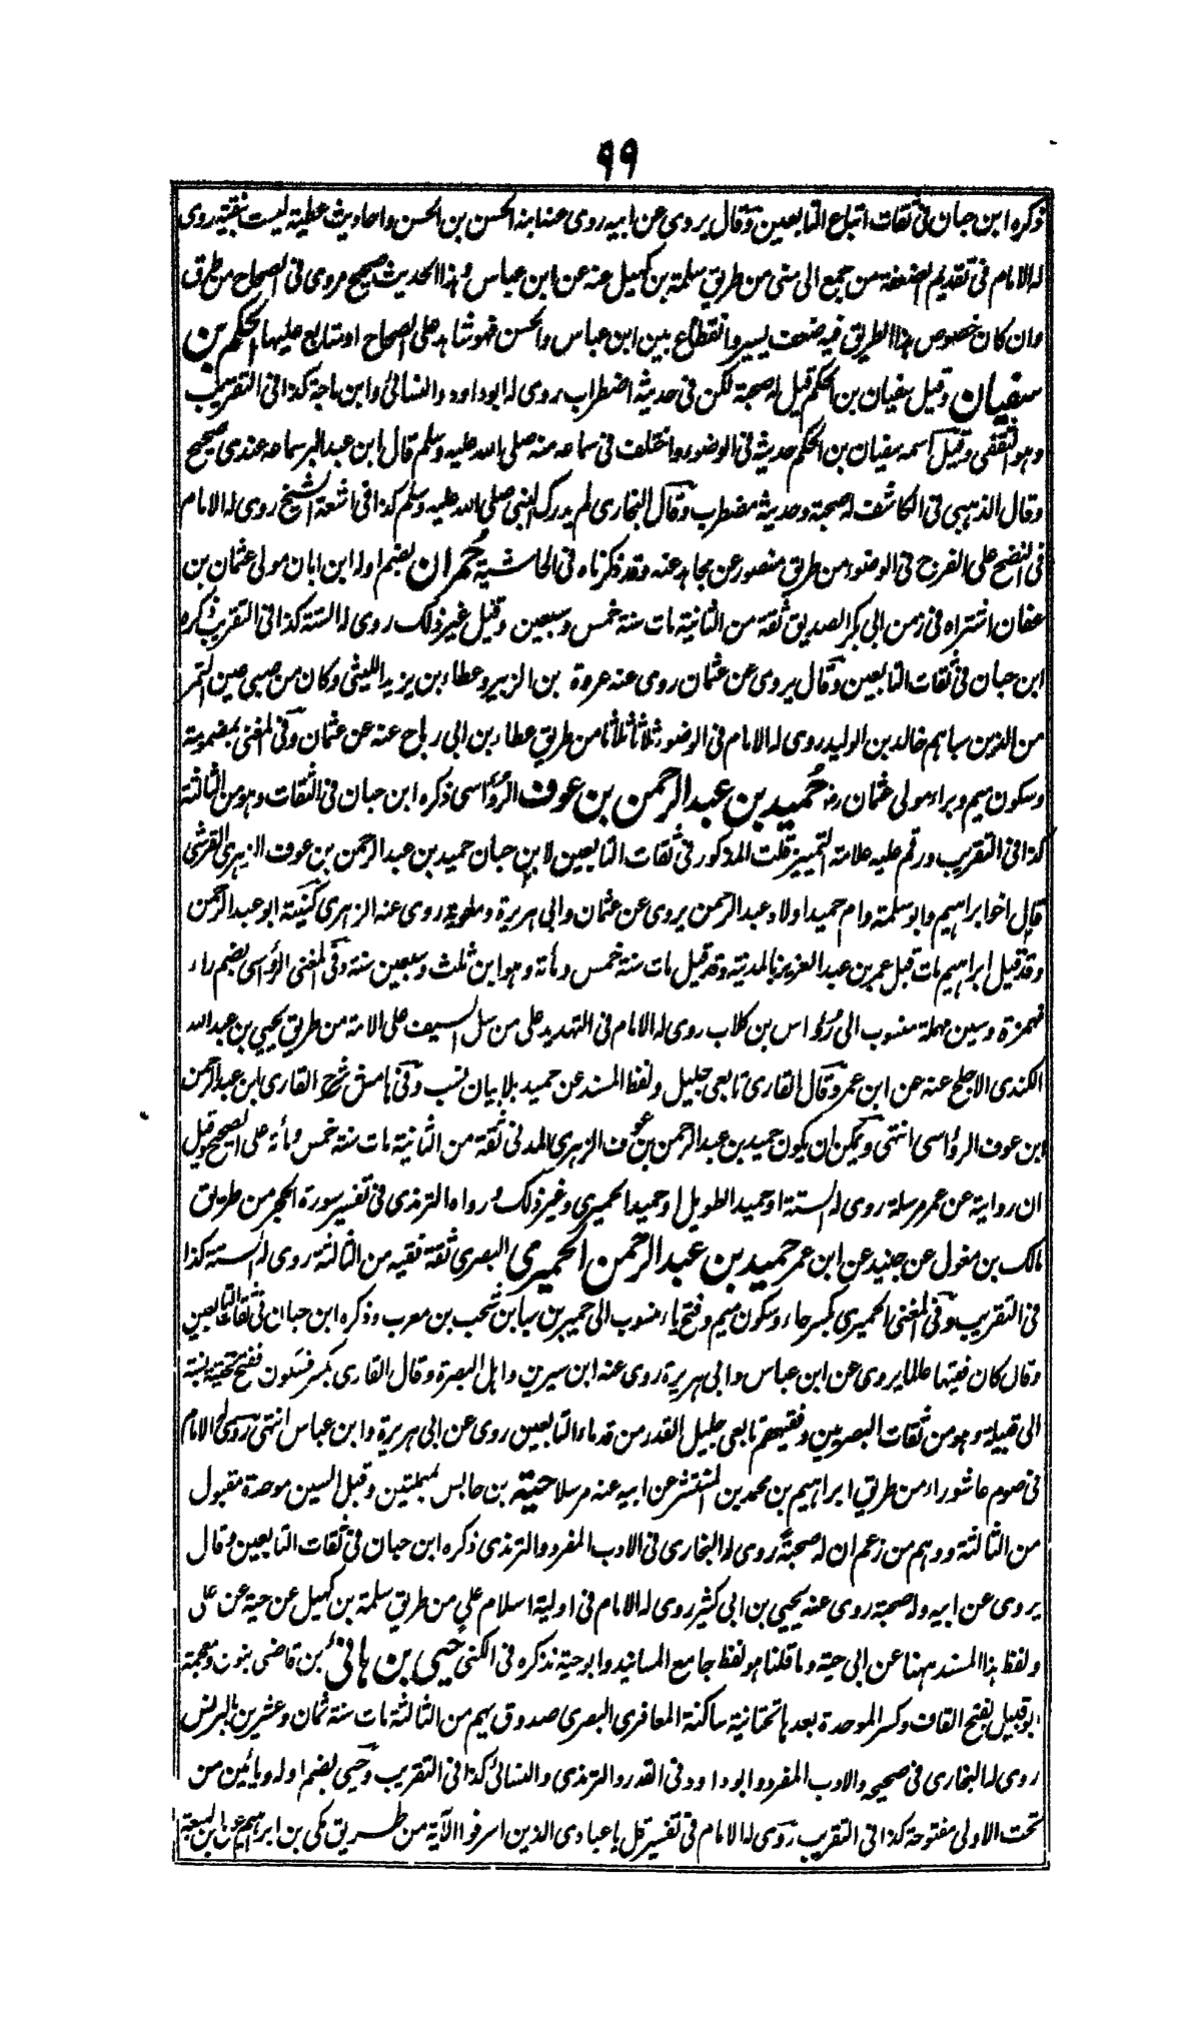 ٩٩
ذكره ابن حبان فى ثقات اتباع التابعين وقال يروى عن ابيه روى عنه ابنه الحسن بن الحسن واحاديث عطية ليست بنقية روى
له الامام فى تقديم الضعفة من جمع الى منى من طريق سلمة بن كهيل عنه عن ابن عباس وهذا الحديث صحيح مروى فى الصحاح من طرق
وان كان خصوص هذا الطريق فيه ضعف يسير وانقطاع بين ابن عباس والحسن فهو شاهد على الصحاح او متابع عليها الحكم بن
سفيان وقيل سفيان بن الحكم قيل له صحبة لكن فى حديثه اضطراب روى له ابو داود والنسائى وابن ماجة كذا فى التقريب
وهو الثقفى وقيل اسمه سفيان بن الحكم حديثه فى الوضوء واختلف فى سماعه منه صلى الله عليه وسلم قال ابن عبد البر سماعه عندى صحيح
وقال الذهبى فى الكاشف له صحبة وحديثه مضطرب وقال البخارى لم يدرك النبى صلى الله عليه وسلم كذا فى اشعة الشيخ روى له الامام
فى النضح على الفرج فى الوضوء من طريق منصور عن مجاهد عنه وقد ذكرناه فى الحاشية حُمران بضم اوله ابن ابان مولى عثمان بن
عفان اشتراه فى زمن ابى بكر الصديق ثقة من الثانية مات سنة خمس وسبعين وقيل غير ذلك روى له الستة كذا فى التقريب ذكره
ابن حبان فى ثقات التابعين وقال يروى عن عثمان روى عنه عروة بن الزبير وعطاء بن يزيد الليثى وكان من سبى عين التمر
من الذين سباهم خالد بن الوليد روى له الامام فى الوضوء ثلاثا ثلاثا من طريق عطاء بن ابى رباح عنه عن عثمان وفى المغنى بمضمومة
وسكون ميم وبراء مولى عثمان رضـ حُميد بن عبد الرحمن بن عوف الرؤاسى ذكره ابن حبان فى الثقات وهو من الثالثة
كذا فى التقريب ورقم عليه علامة التمييز قلت المذكور فى ثقات التابعين لابن حبان حميد بن عبد الرحمن بن عوف الزهرى القرشى
قال اخو ابراهيم وابو سلمة وام حميد اولاد عبد الرحمن يروى عن عثمان وابى هريرة ومعوية روى عنه الزهرى كنيته ابو عبد الرحمن
وقد قيل ابراهيم مات قبل عمر بن عبد العزيز بالمدينة وقد قيل مات سنة خمس ومأة وهو ابن ثلث وسبعين سنة وفى المغنى الرؤاسى بضم راء
فهمزة وسين مهملة منسوب الى رُؤاس بن كلاب روى له الامام فى التهديد على من سل السيف على الامة من طريق يحيى بن عبد الله
الكندى الاجلح عنه عن ابن عمر وقال القارى تابعى جليل ولفظ المسند عن حميد بلا بيان نسب وفى هامش شرح القارى ابن عبد الرحمن
ابن عوف الرؤاسى انتهى ويمكن ان يكون حميد بن عبد الرحمن بن عوف الزهرى المدنى ثقة من الثانية مات سنة خمس ومأة على الصحيح وقيل
ان روايته عن عمر مرسلة روى له الستة او حميد الطويل او حميد الحميرى وغير ذلك ورواه الترمذى فى تفسير سورة الحجر من طريق
مالك بن مغول عن جنيد عن ابن عمر حميد بن عبد الرحمن الحميرى البصرى ثقة فقيه من الثالثة روى له الستة كذا
فى التقريب وفى المغنى الحميرى بكسر حاء وسكون ميم وفتح ياء منسوب الى حمير بن سبا بن شحب بن معرب وذكره ابن حبان فى ثقات التابعين
وقال كان فقيها عالما يروى عن ابن عباس وابى هريرة روى عنه ابن سيرين واهل البصرة وقال القارى بكسر فسكون ففتح تحتية نسبة
الى قبيلة وهو من ثقات البصريين وفقيههم تابعى جليل القدر من قدماء التابعين روى عن ابى هريرة وابن عباس انتهى روى له الامام
فى صوم عاشوراء من طريق ابراهيم بن محمد بن المنتشر عن ابيه عنه مرسلا حية بن حابس بمهملتين وقبل السين موحدة مقبول
من الثالثة ووهم من زعم ان له صحبة روى له البخارى فى الادب المفرد والترمذى ذكره ابن حبان فى ثقات التابعين وقال
يروى عن ابيه وله صحبة روى عنه يحيى بن ابى كثير روى له الامام فى اولية اسلام على من طريق سلمة بن كهيل عن حية عن على
ولفظ هذا المسند ههنا عن ابى حية وما قلنا هو لفظ جامع المسانيد وابو حية نذكره فى الكنى حُيى بن هانئ بن قاضى بنون ومعجمة
ابو قبيل بفتح القاف وكسر الموحدة بعدها تحتانية ساكنة المعافرى البصرى صدوق يهم من الثالثة مات سنة ثمان وعشرين بالبرلس
روى له البخارى فى صحيحه والادب المفرد وابو داود فى القدر والترمذى والنسائى كذا فى التقريب وحيى بضم اوله ويائين من
تحت الاولى مفتوحة كذا فى التقريب روى له الامام فى تفسير قل يا عبادى الذين اسرفوا الآية من طريق مكى بن ابراهيم عن ابن لهيعة